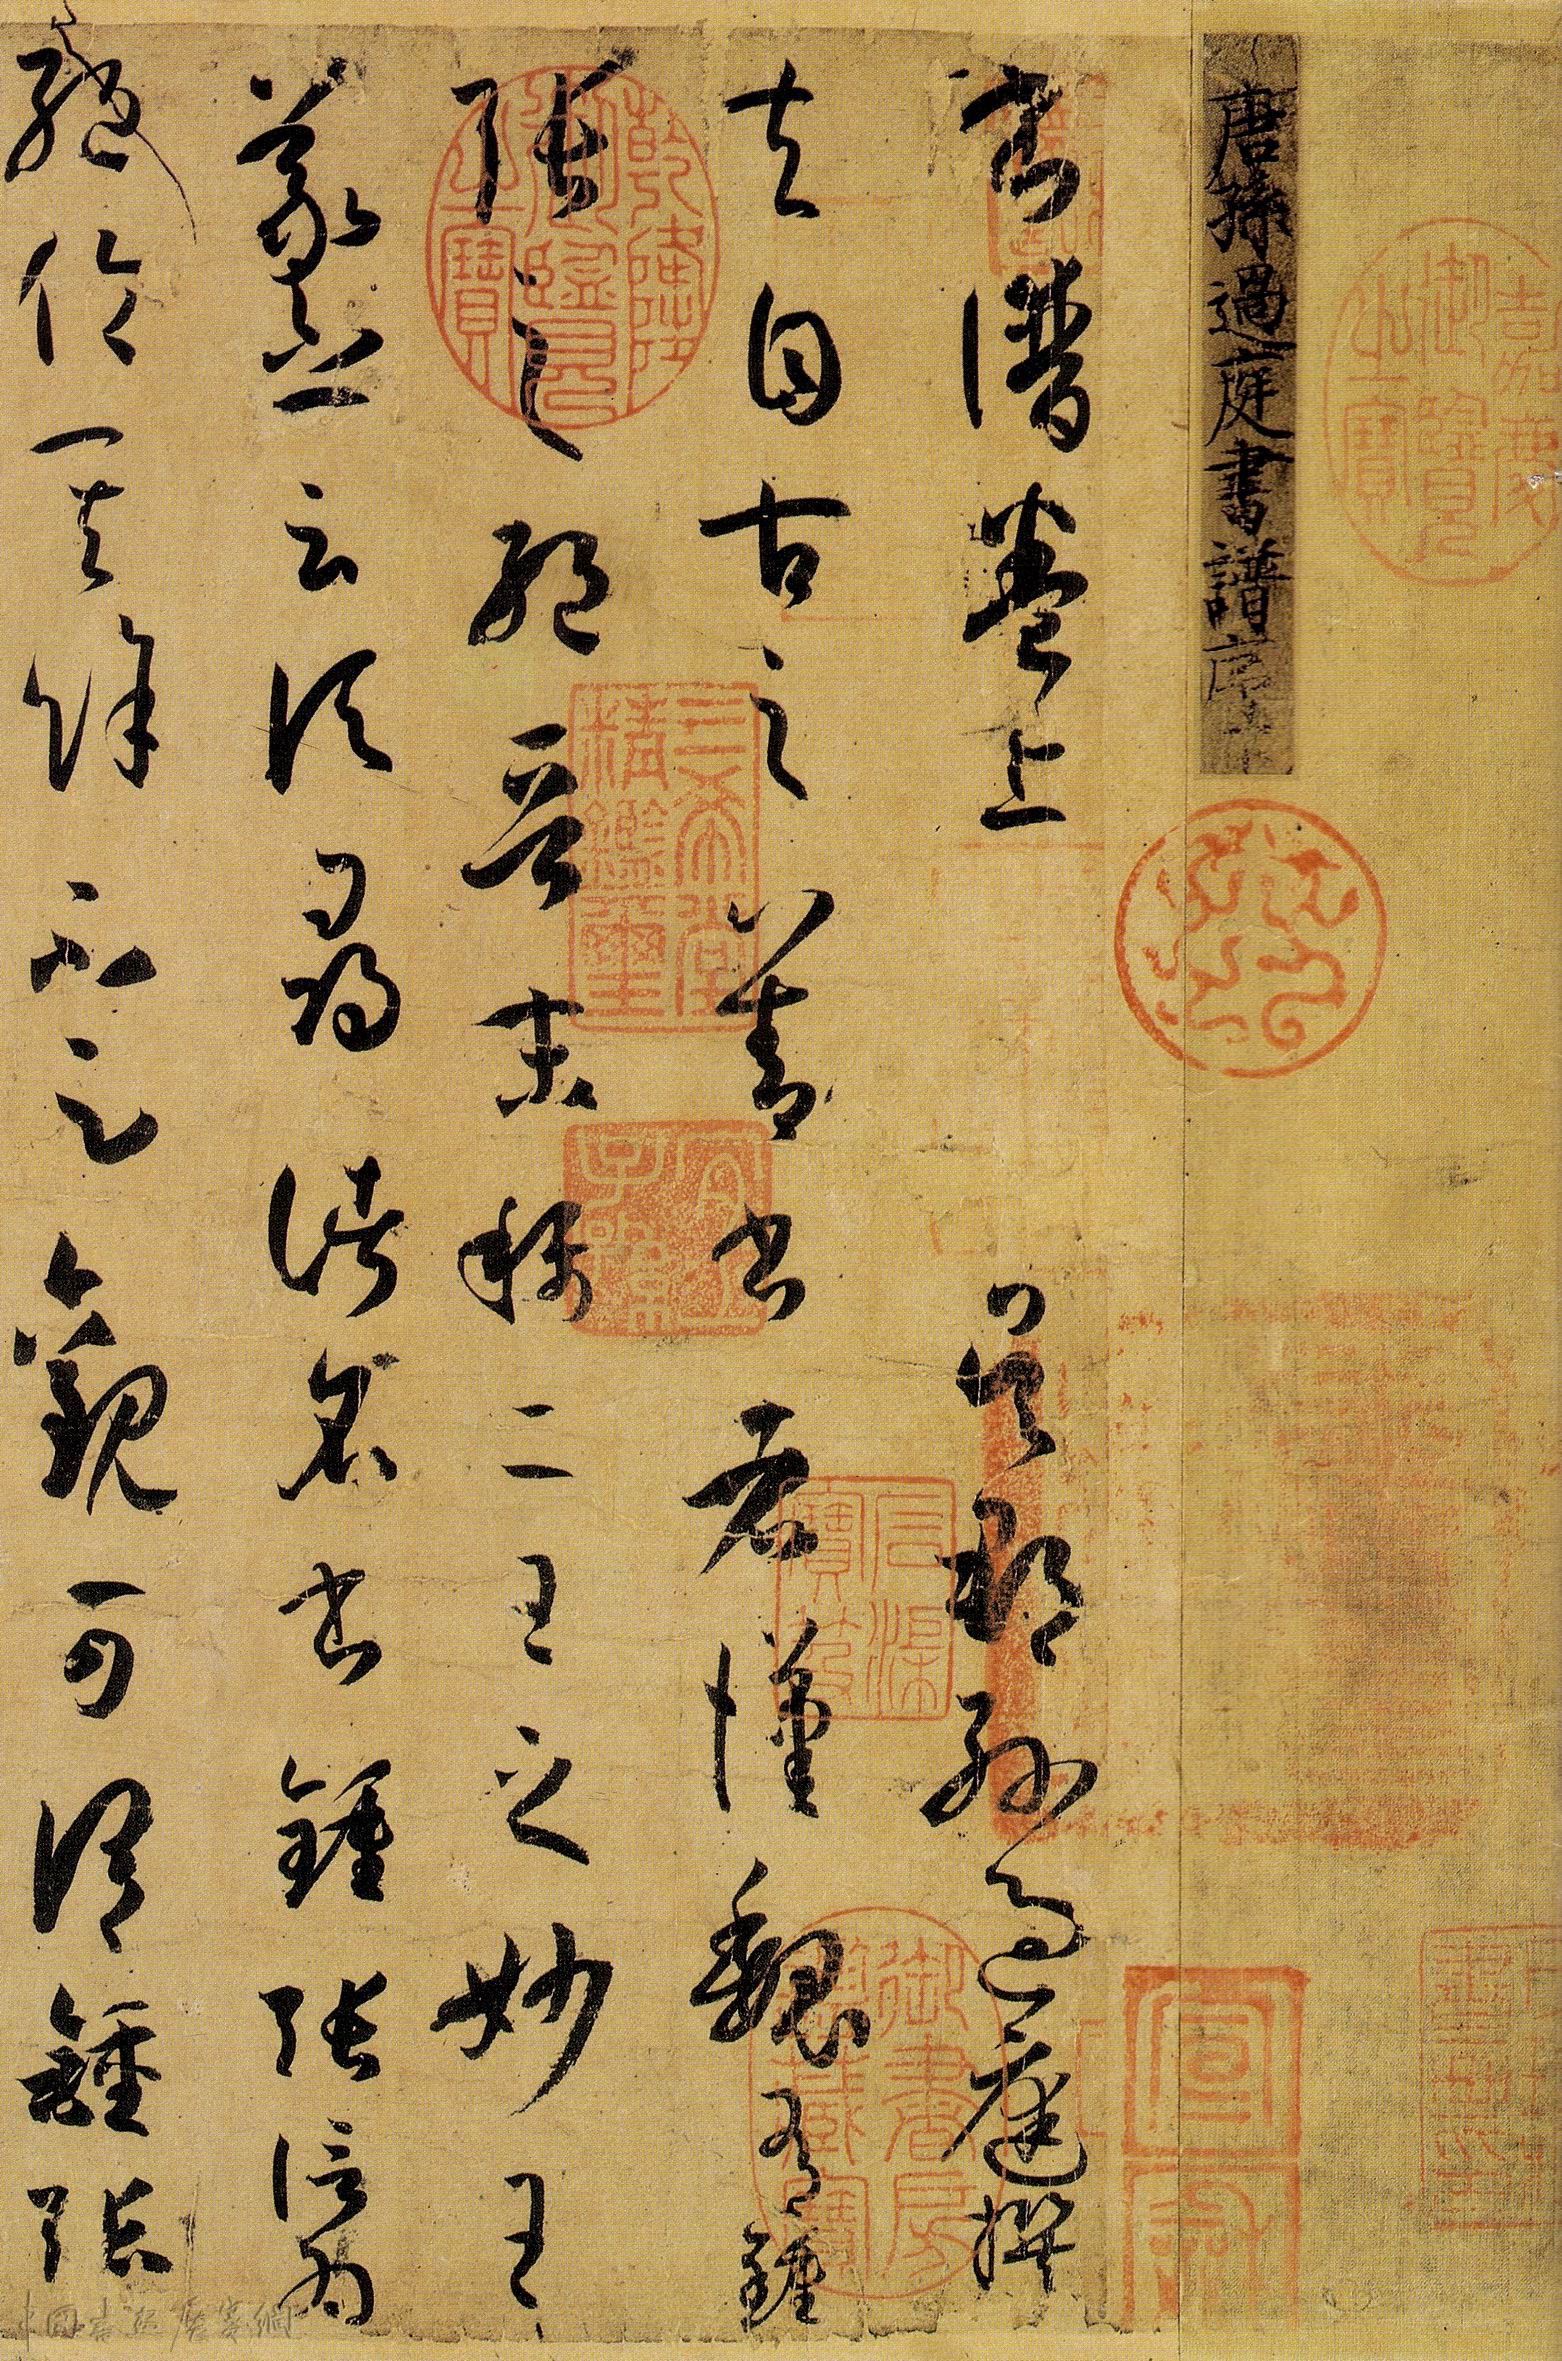 唐孫過庭書譜序
書譜卷上 吳郡孫過庭撰
夫自古之善書者漢魏有鍾
張之絕晉末稱二王之妙王
羲之云頃尋諸名書鍾張信為
絕倫其餘不足觀可謂鍾張
嘉慶御覽之寶
乾隆御覽之寶
三希堂精鑑璽
宣和